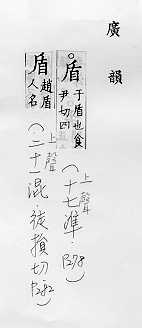 廣韻
。盾 干盾也食
尹切四
(上聲 十七準. P278)
盾 趙盾
人名
(上聲 二十一混.徒損切 P282)